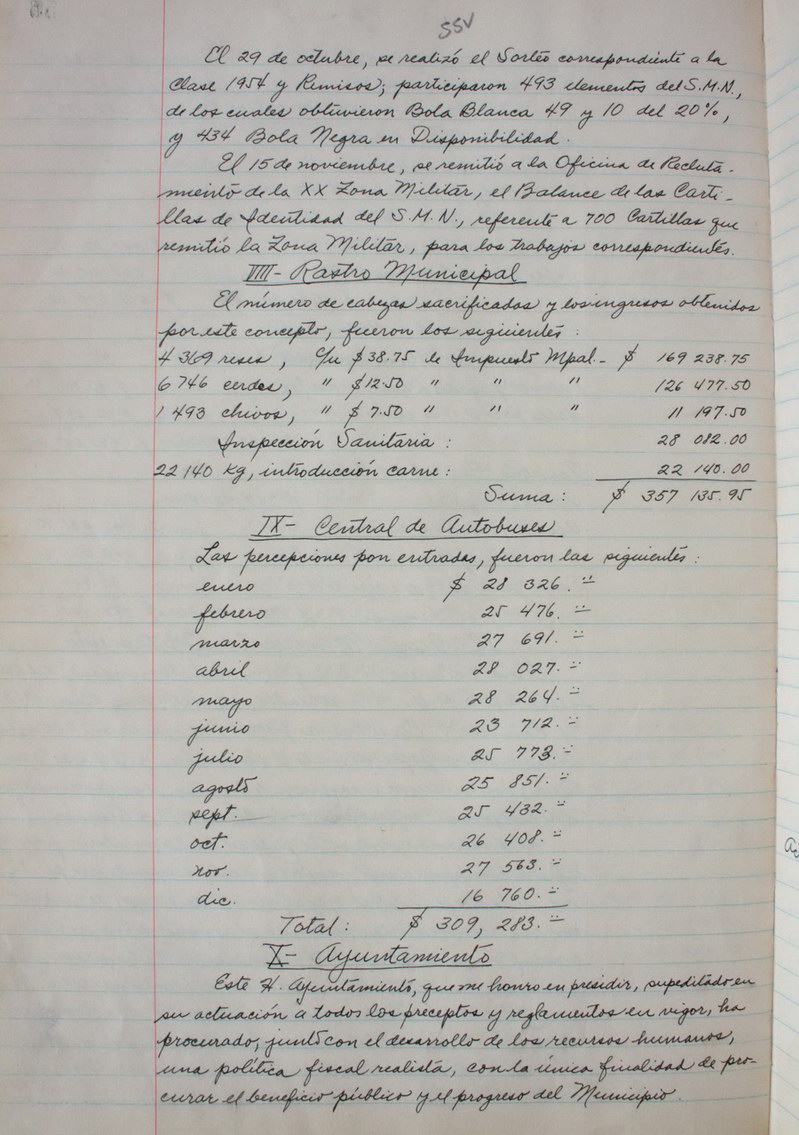 SSV
El 29 de octubre, se realizó el Sorteo correspondiente a la
Clase 1954 y Remisos; participaron 493 elementos del S.M.N.,
de los cuales obtuvieron Bola Blanca 49 y 10 del 20%,
y 434 Bola Negra en Disponibilidad.
El 15 de noviembre, se remitió a la Oficina de Recluta-
miento de la XX Zona Militar, el Balance de las Carti-
llas de Identidad del S.M.N., referente a 700 Cartillas que
remitió la Zona Militar, para los trabajos correspondientes.
VIII- Rastro Municipal
El número de cabezas sacrificadas y los ingresos obtenidos
por este concepto, fueron los siguientes:
4 369 reses, c/u $38.75 de Impuesto Mpal- $ 169 238.75
6 746 cerdos, " $12.50 " " " 126 477.50
1 493 chivos, " $7.50 " " " 11 197.50
Inspección Sanitaria: 28 082.00
22 140 kg, introducción carne: 22 140.00
Suma: $ 357 135.95
IX- Central de Autobuses
Las percepciones por entradas, fueron las siguientes:
enero $ 28 326.=
febrero 25 476.=
marzo 27 691.=
abril 28 027.=
mayo 28 264.=
junio 23 712.=
julio 25 773.=
agosto 25 851.=
sept. 25 432.=
oct. 26 408.=
nov. 27 563.=
dic. 16 760.=
Total: $ 309, 283.=
X- Ayuntamiento
Este H. Ayuntamiento, que me honro en presidir, supeditado en
su actuación a todos los preceptos y reglamentos en vigor, ha
procurado, junto con el desarrollo de los recursos humanos,
una política fiscal realista, con la única finalidad de pro-
curar el beneficio público y el progreso del Municipio.